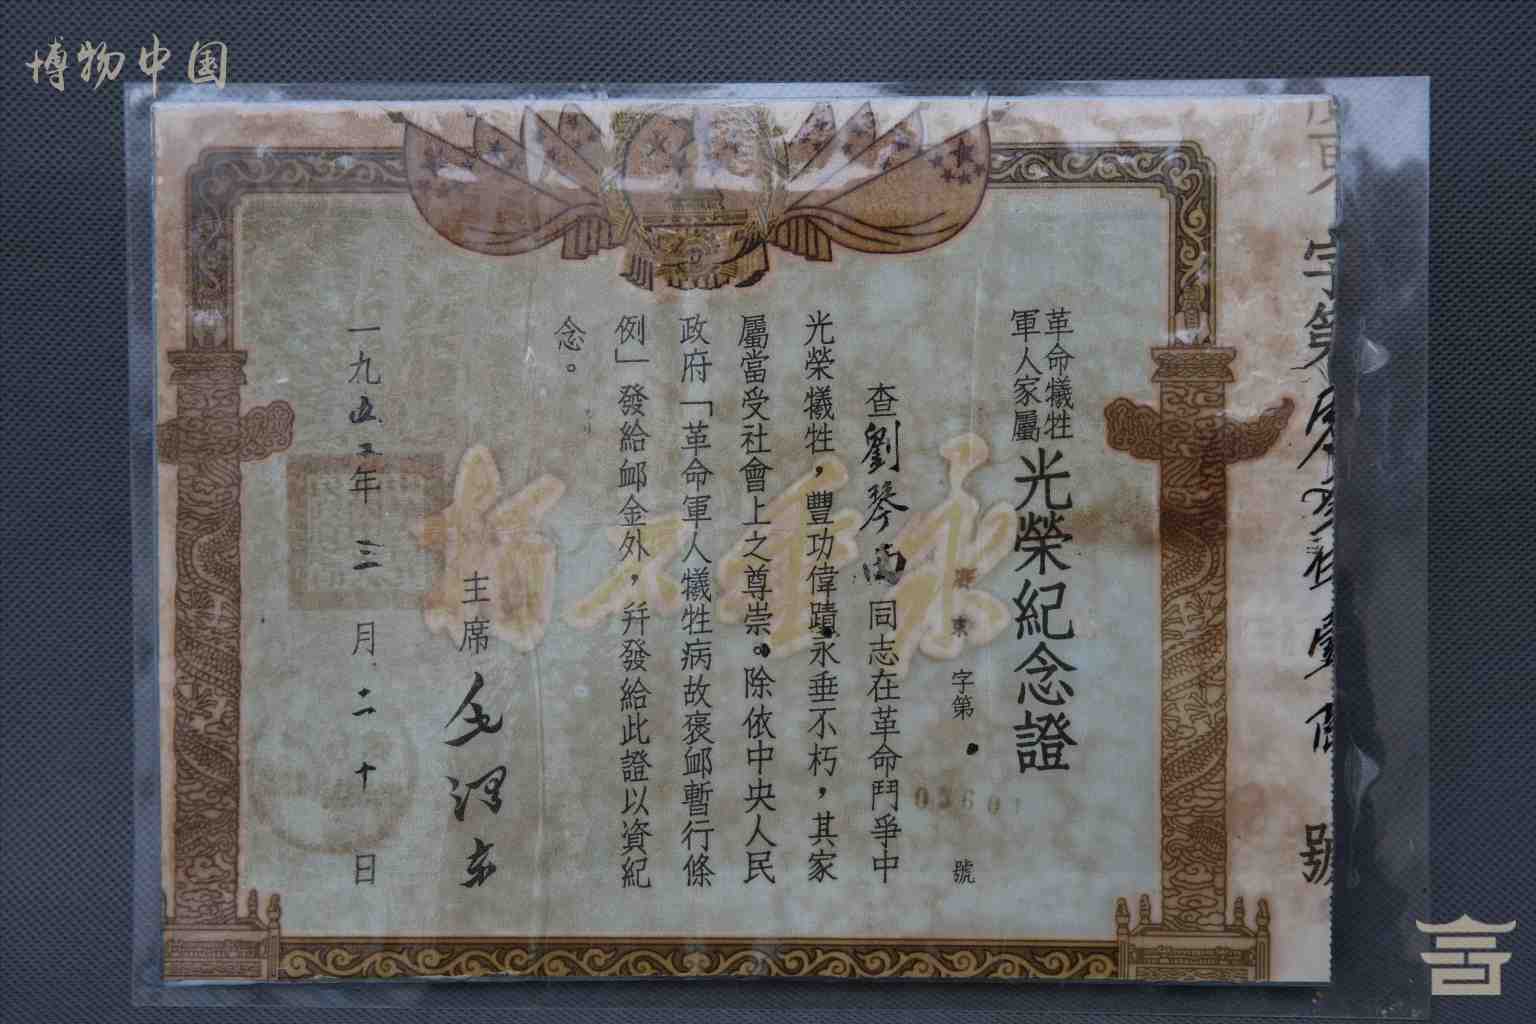 博物中国
革命犧牲
軍人家屬
光榮紀念證
東 字第 號
查劉琴西同志在革命鬥爭中
光榮犧牲，豐功偉蹟永垂不朽，其家
屬當受社會上之尊崇。除依中央人民
政府「革命軍人犧牲病故褒卹暫行條
例」發給卹金外，幷發給此證以資紀
念。
主席 毛澤東
一九五二年 三月 二十日
永垂不朽
字第 號